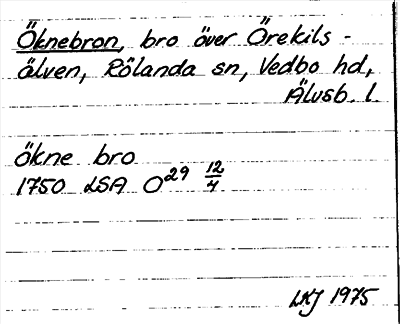 Öknebron, bro över Örekils-
älven, Rölanda sn, Vedbo hd,
Älvsb. l.
ökne bro
1750 LSA O29 12/4
LHJ 1975